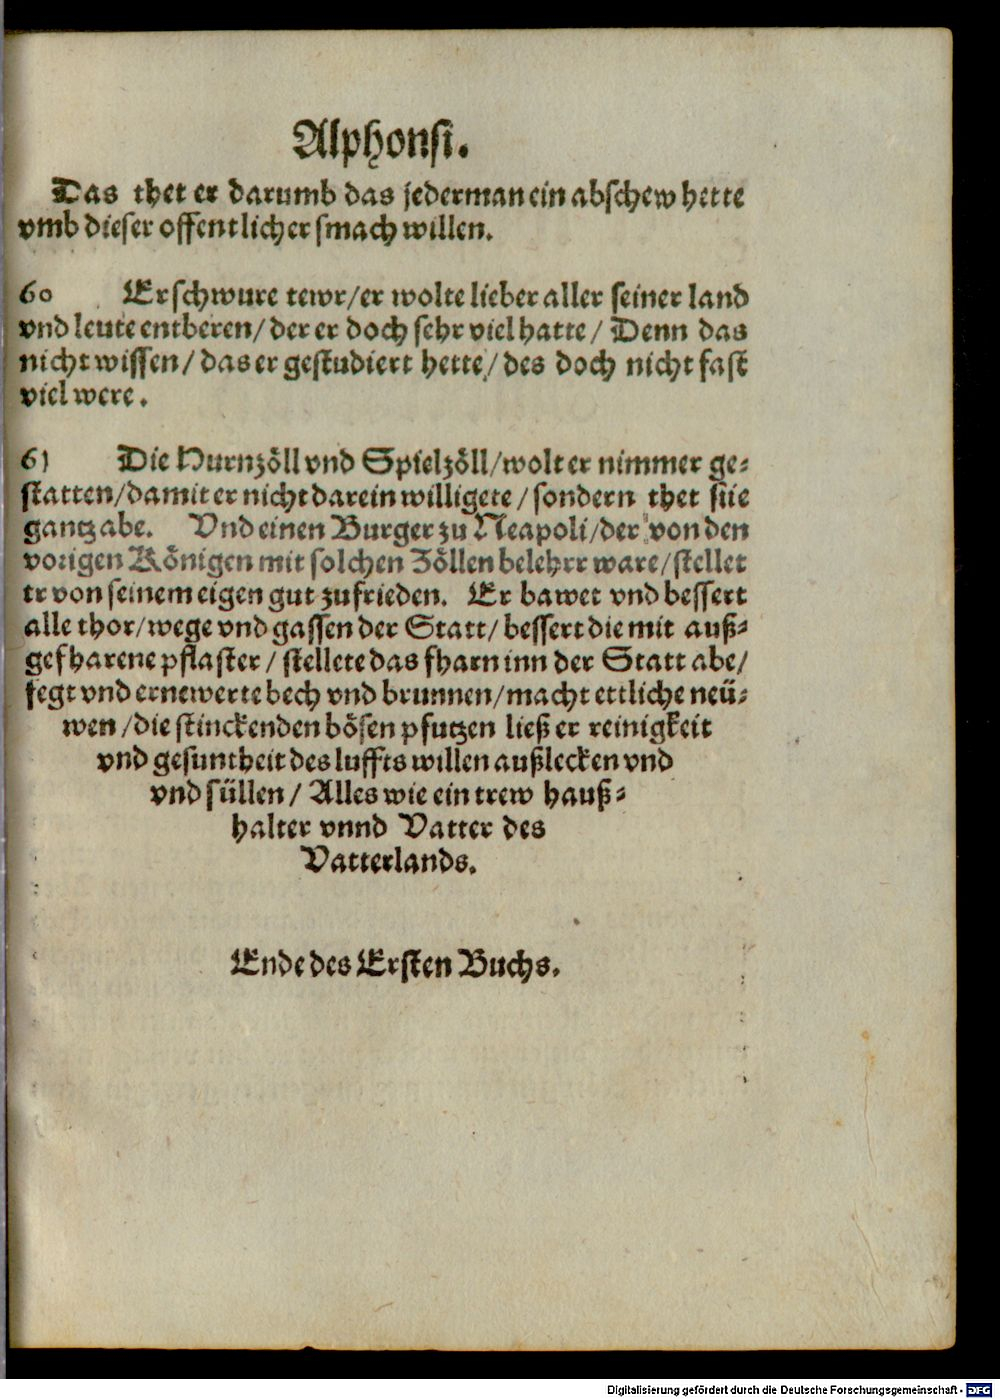 Alphonsi.
Das thet er darumb das jederman ein abschew hette
vmb dieser offentlicher smach willen.
60 Er schwure tewr/er wolte lieber aller seiner land
vnd leute entberen/der er doch sehr viel hatte/ Denn das
nicht wissen/das er gestudiert hette/des doch nicht fast
viel were.
61 Die Hurnzöll vnd Spielzöll/wolt er nimmer ge-
statten/damit er nicht darein willigete/sondern thet siie
gantz abe. Vnd einen Burger zu Neapoli/der von den
vorigen Königen mit solchen Zöllen belehrr ware/stellet
tr von seinem eigen gut zufrieden. Er bawet vnd bessert
alle thor/wege vnd gassen der Statt/bessert die mit auß-
gefharene pflaster/stellete das fharn inn der Statt abe/
fegt vnd ernewerte bech vnd brunnen/macht ettliche neü-
wen/die stinckenden bösen pfutzen ließ er reinigkeit
vnd gesuntheit des luffts willen außlecken vnd
vnd süllen/ Alles wie ein trew hauß-
halter vnnd Vatter des
Vatterlands.
Ende des Ersten Buchs.
Digitalisierung gefördert durch die Deutsche Forschungsgemeinschaft - DFG